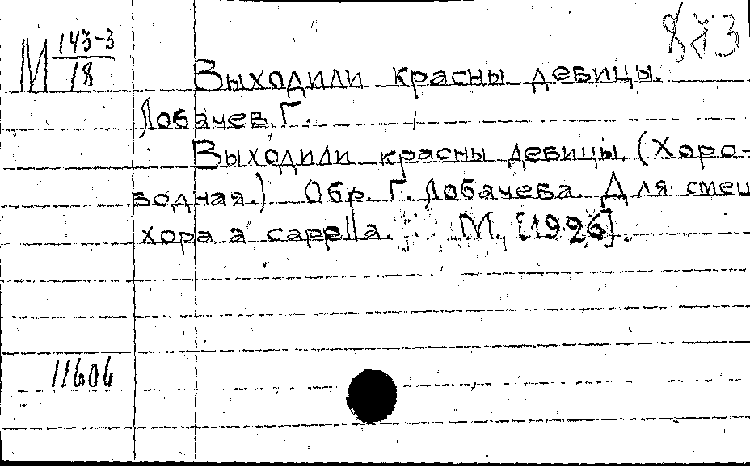 873
М 143-3
18
Выходили красны девицы.
Лобачев, Г.
Выходили красны девицы. (Хоро-
водная.) Обр. Г. Лобачева. Для смеш
хора a cappella. М., [1926].
11606